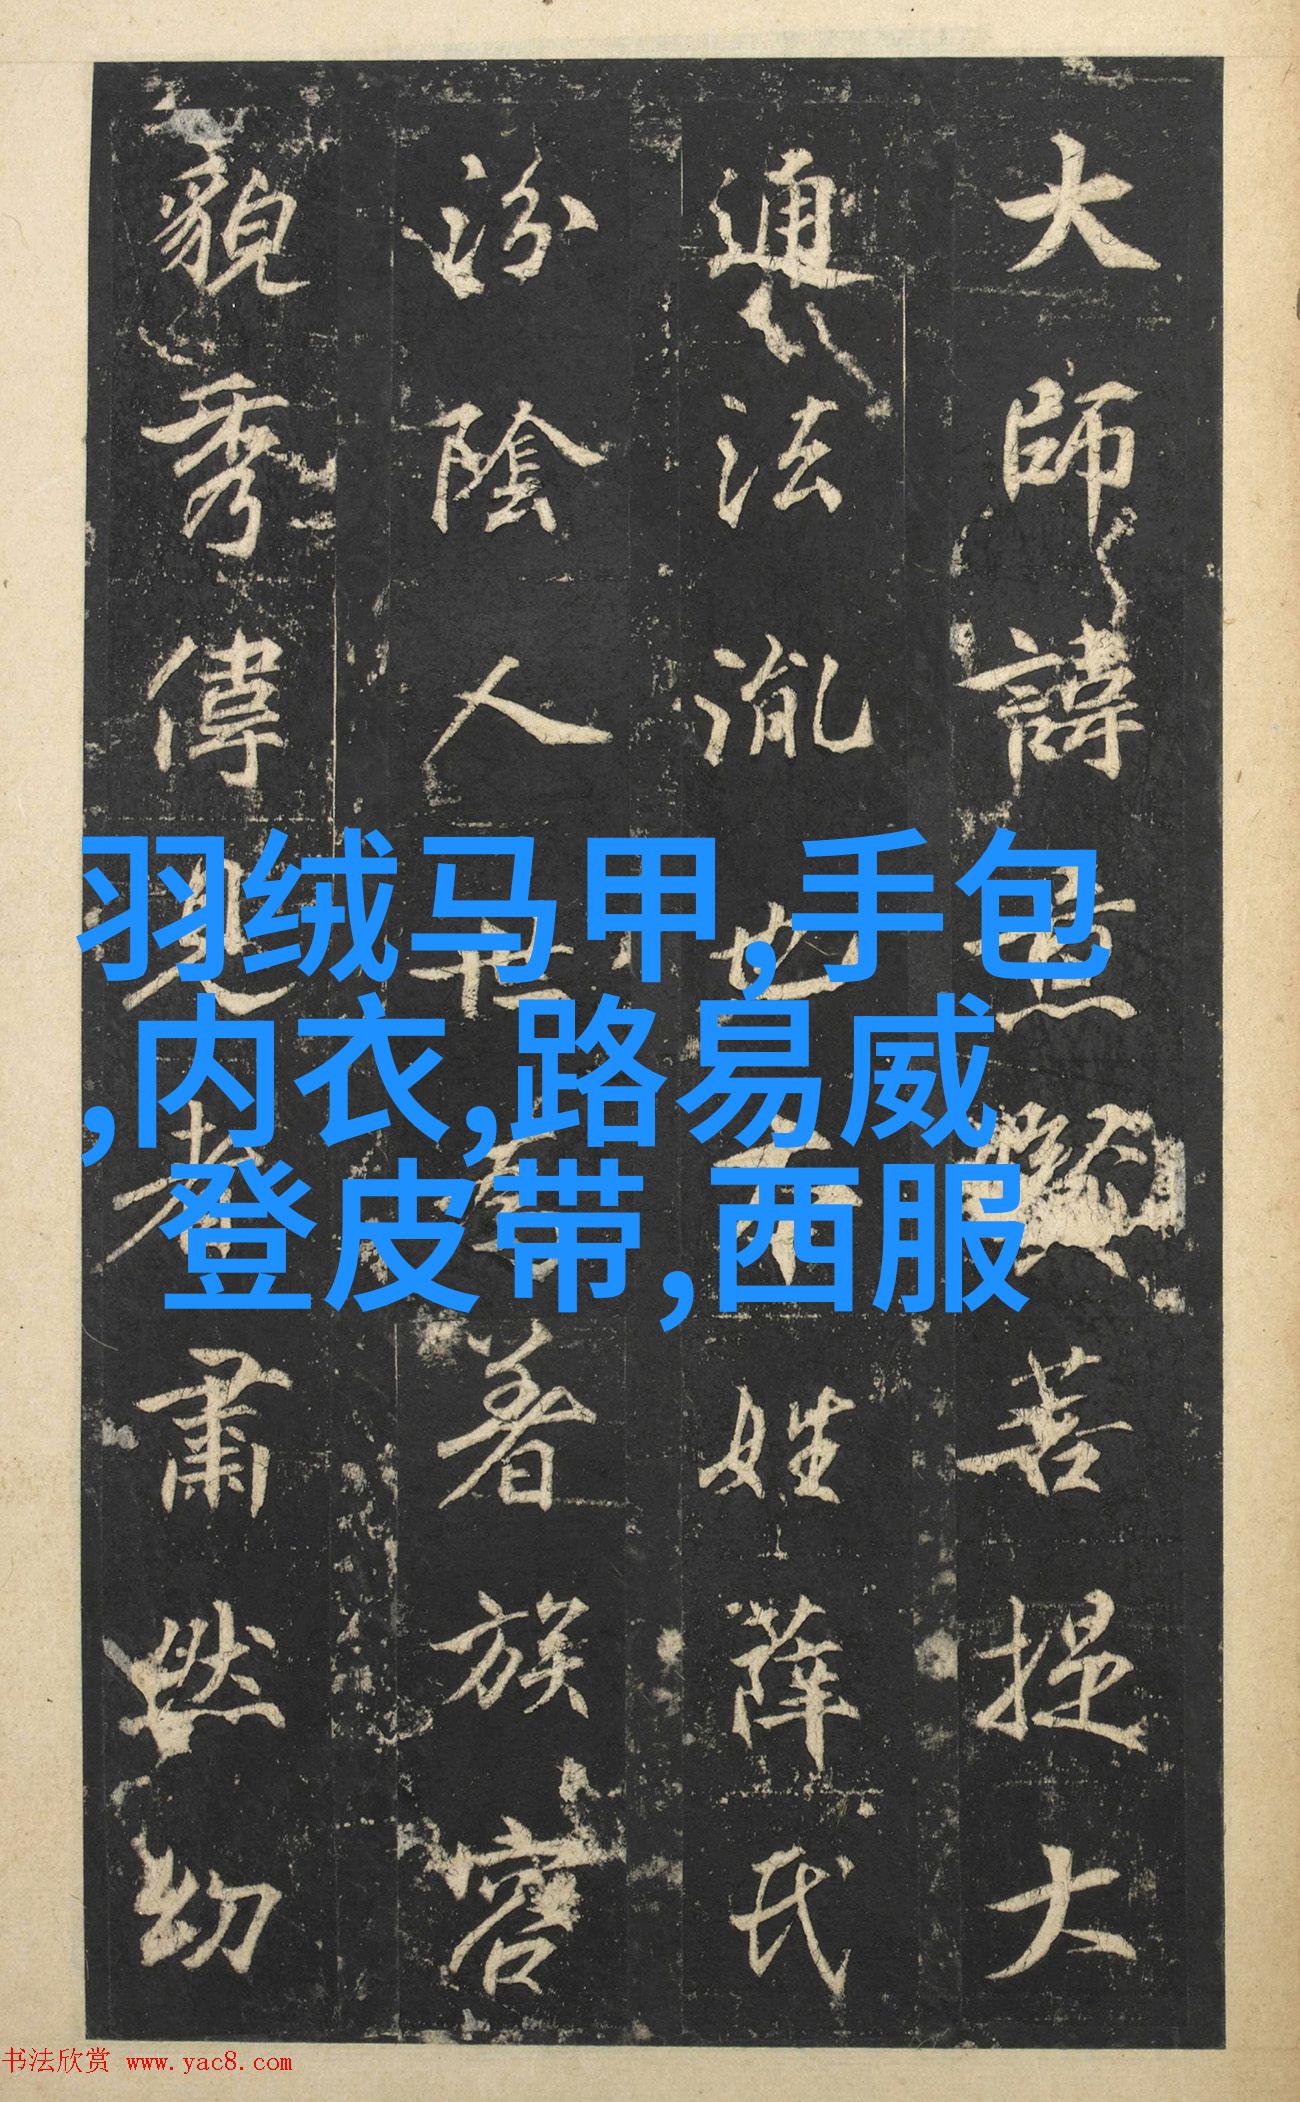 大師諱菩提大
通法胤也姓薛氏
汾陰人世著族容
貌秀偉見者肅然幼
羽绒马甲,手包
,内衣,路易威
登皮带,西服
书法欣赏 www.yac8.com